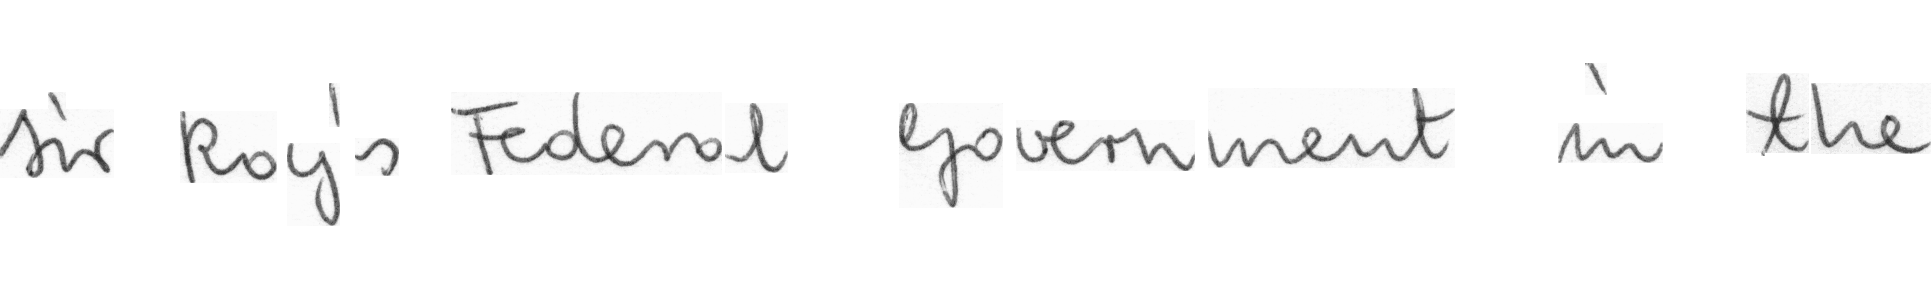 Sir Roy's Federal Government in the